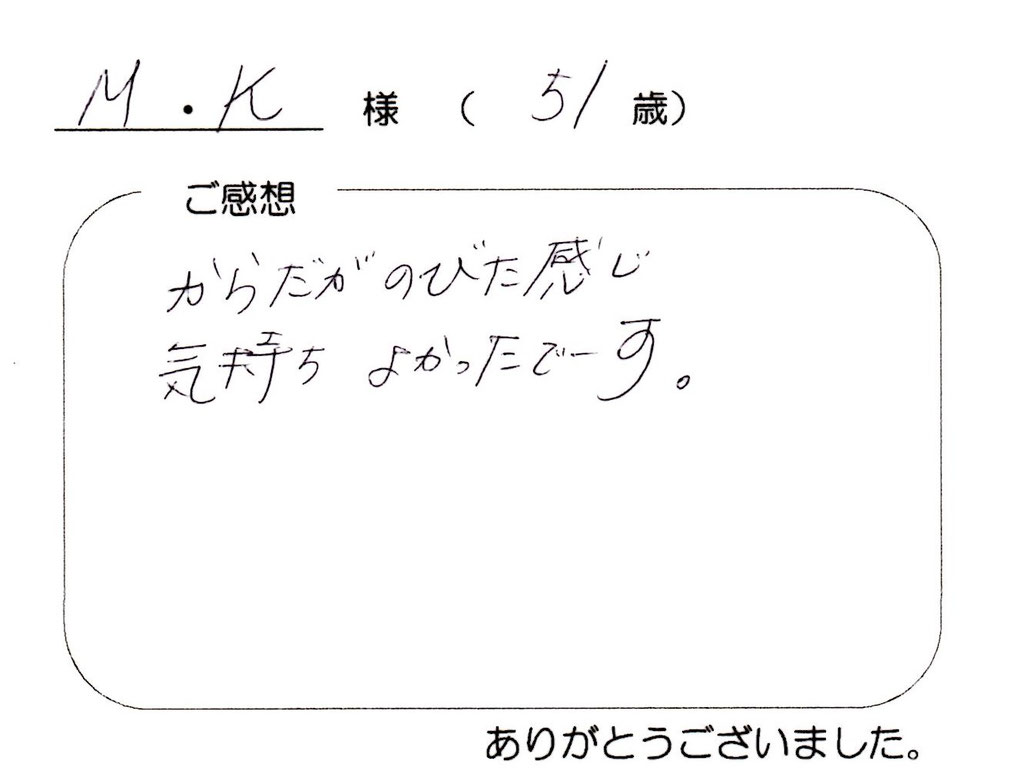 M・K 様 ( 51 歳)
ご感想
からだがのびた感じ
気持ち よかったでーす。
ありがとうございました。